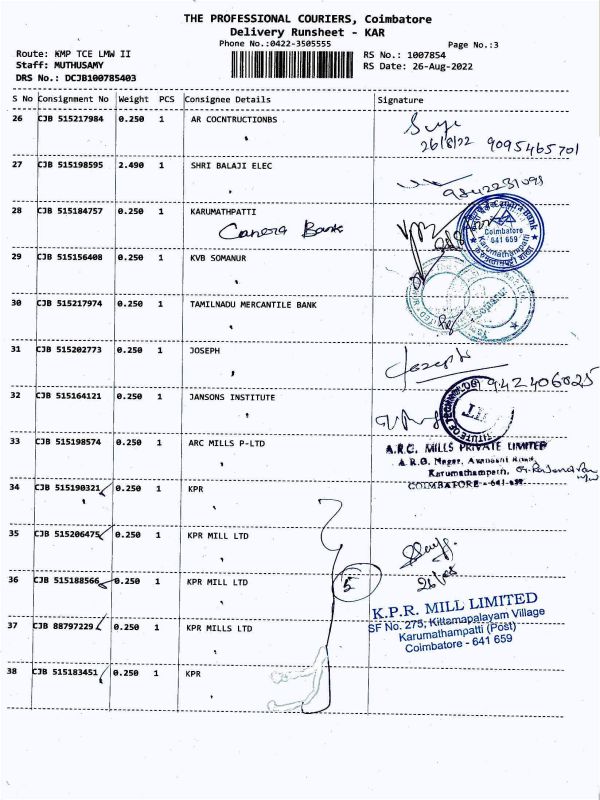 THE PROFESSIONAL COURIERS, Coimbatore
Delivery Runsheet - KAR
Phone No.:0422-3505555
Page No.:3
Route: KMP TCE LMW II
RS No.: 1007854
Staff: MUTHUSAMY
RS Date: 26-Aug-2022
DRS No.: DCJB100785403
S No Consignment No Weight PCS Consignee Details Signature
26 CJB 515217984 0.250 1 AR COCNTRUCTIONBS
26/8/22 9095465701
27 CJB 515198595 2.490 1 SHRI BALAJI ELEC
9842231098
28 CJB 515184757 0.250 1 KARUMATHPATTI
Canera Bank
Canara Bank
Coimbatore
641 659
Karumathampatti
29 CJB 515156408 0.250 1 KVB SOMANUR
30 CJB 515217974 0.250 1 TAMILNADU MERCANTILE BANK
31 CJB 515202773 0.250 1 JOSEPH
Joseph
9842406025
32 CJB 515164121 0.250 1 JANSONS INSTITUTE
33 CJB 515198574 0.250 1 ARC MILLS P-LTD
A.R.C. MILLS PRIVATE LIMITED
A.R.G. Nagar, Avanashi Road,
Karumathampatti,
COIMBATORE - 641 659.
34 CJB 515190321 0.250 1 KPR
35 CJB 515206475 0.250 1 KPR MILL LTD
36 CJB 515188566 0.250 1 KPR MILL LTD
5
K.P.R. MILL LIMITED
SF No. 275, Kittamapalayam Village
Karumathampatti (Post)
Coimbatore - 641 659
37 CJB 88797229 0.250 1 KPR MILLS LTD
38 CJB 515183451 0.250 1 KPR